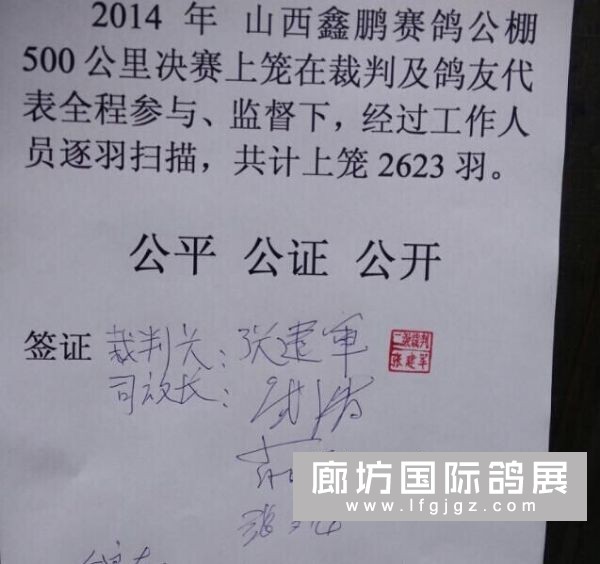 2014 年 山西鑫鹏赛鸽公棚
500 公里决赛上笼在裁判及鸽友代
表全程参与、监督下，经过工作人
员逐羽扫描，共计上笼 2623 羽。
公平 公证 公开
签证 裁判长：张建军
二级裁判
张建军
司放长：
廊坊国际鸽展
www.lfgjgz.com